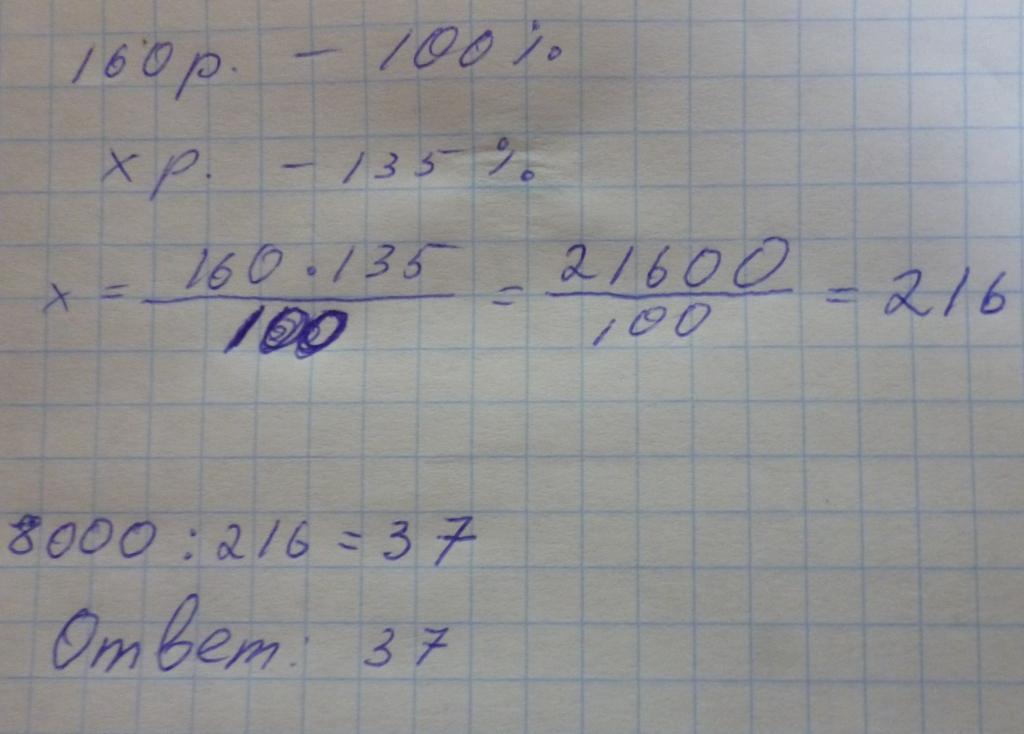 160р. - 100%
х р. - 135 %
х = 160 · 135 / 100 = 21600 / 100 = 216
8000 : 216 = 37
Ответ: 37